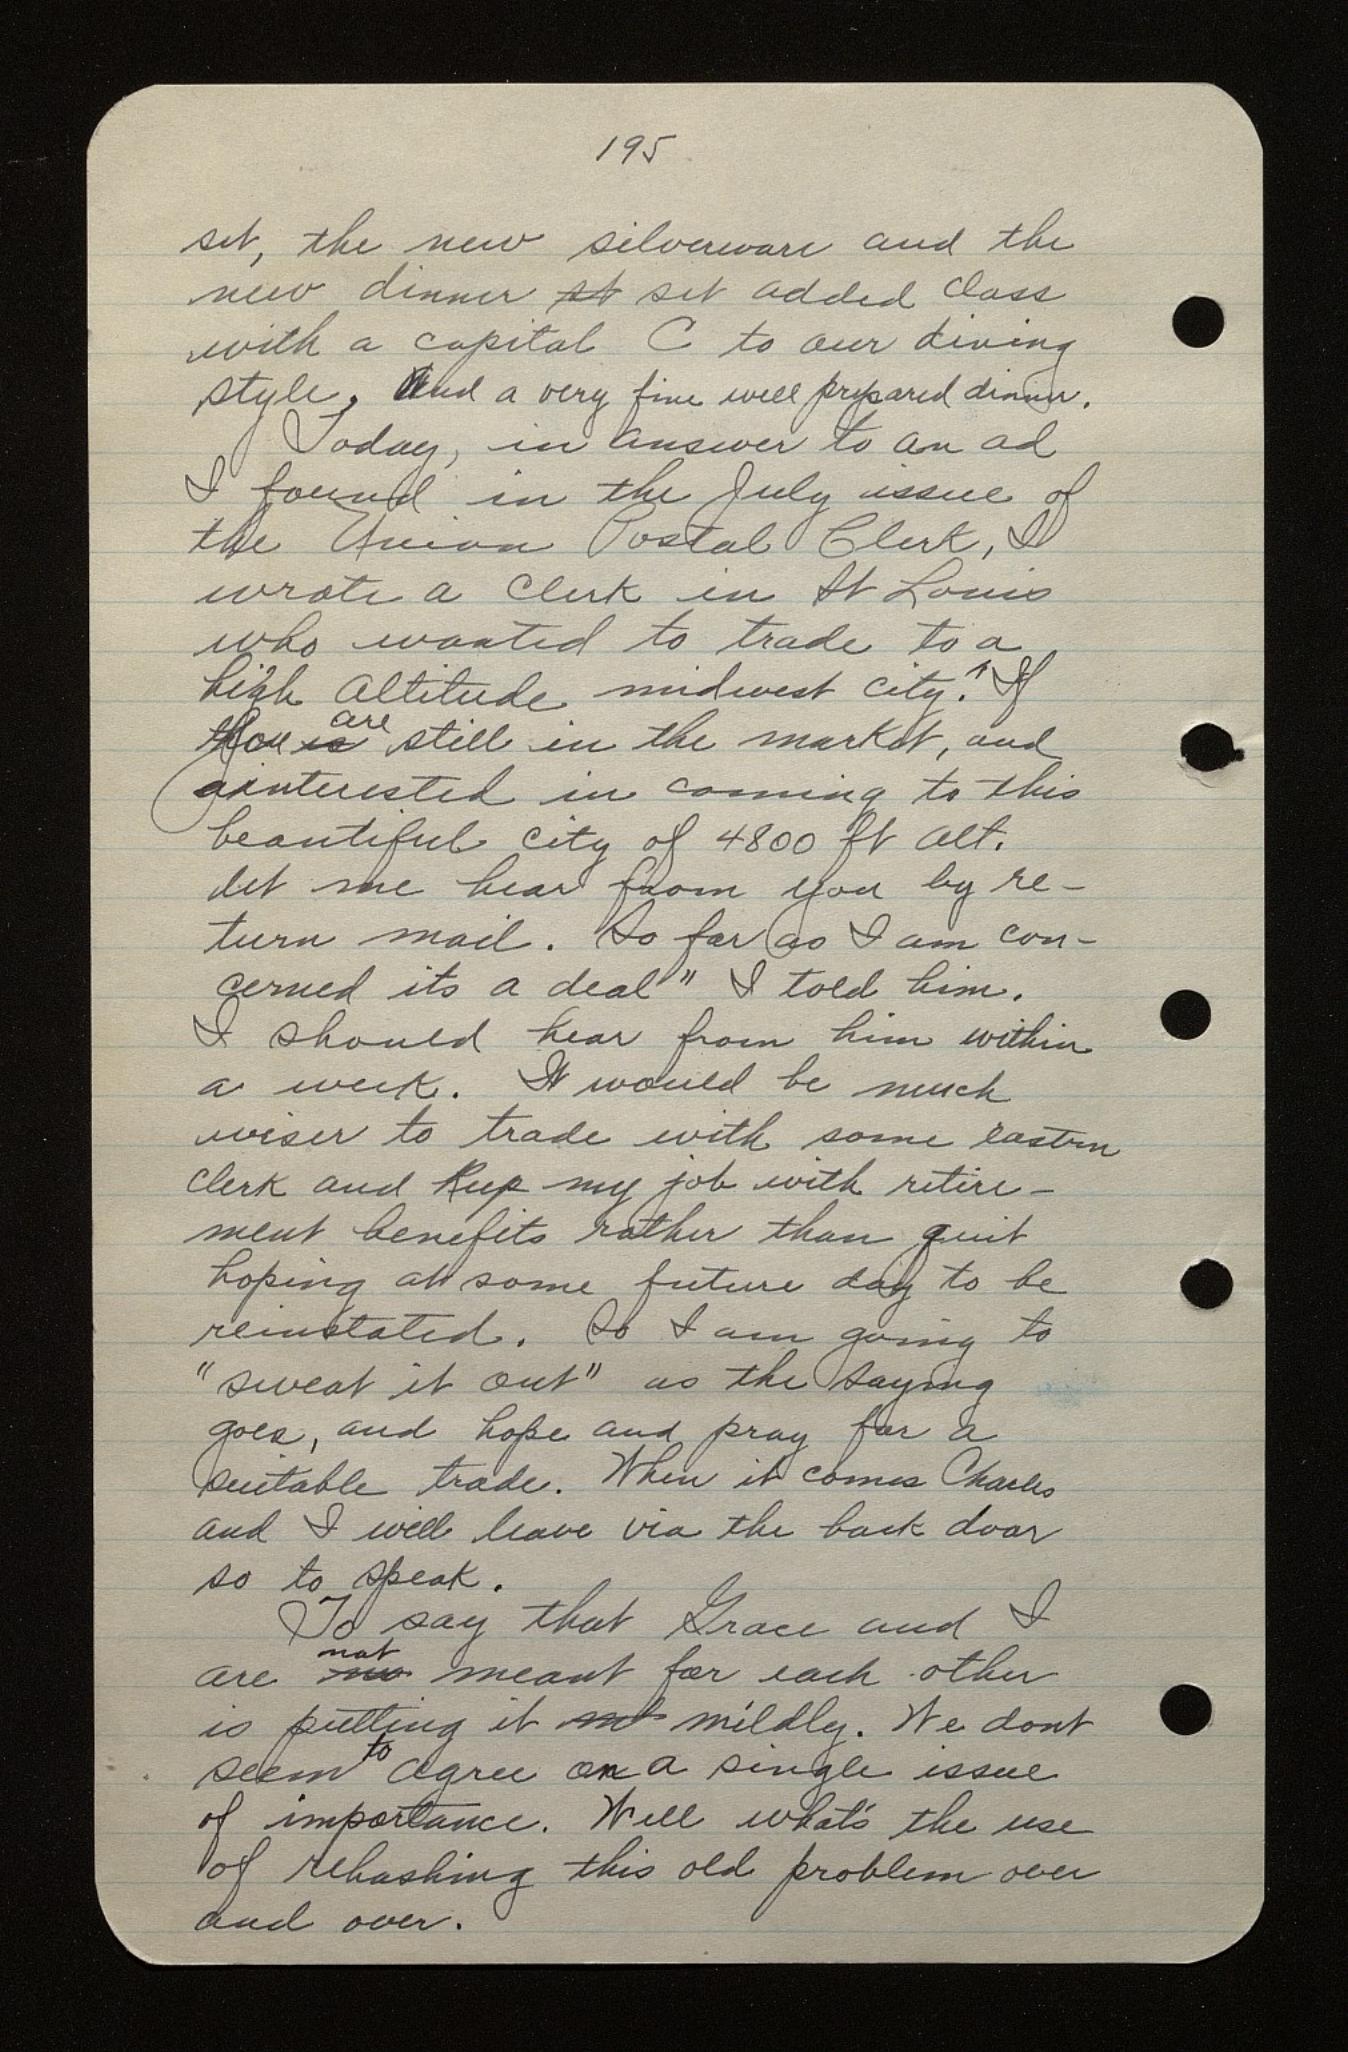 195
set, the new silverware and the
new dinner st set added class
with a capital C to our diving
style. And a very fine well prepared dinner.
Today, in answer to an ad
I found in the July issue of
the Union Postal Clerk, I
wrote a clerk in St Louis
who wanted to trade to a
high altitude midwest city. "If
you is are still in the market, and
interested in coming to this
beautiful city of 4800 ft alt.
let me hear from you by re-
turn mail. So far as I am con-
cerned its a deal" I told him.
I should hear from him within
a week. It would be much
wiser to trade with some eastern
clerk and keep my job with retire-
ment benefits rather than quit
hoping at some future day to be
reinstated. So I am going to
"sweat it out" as the saying
goes, and hope and pray for a
suitable trade. When it comes Charles
and I will leave via the back door
so to speak.
To say that Grace and I
are not meant for each other
is putting it mildly. We dont
seem to agree on a single issue
of importance. Well what's the use
of rehashing this old problem over
and over.